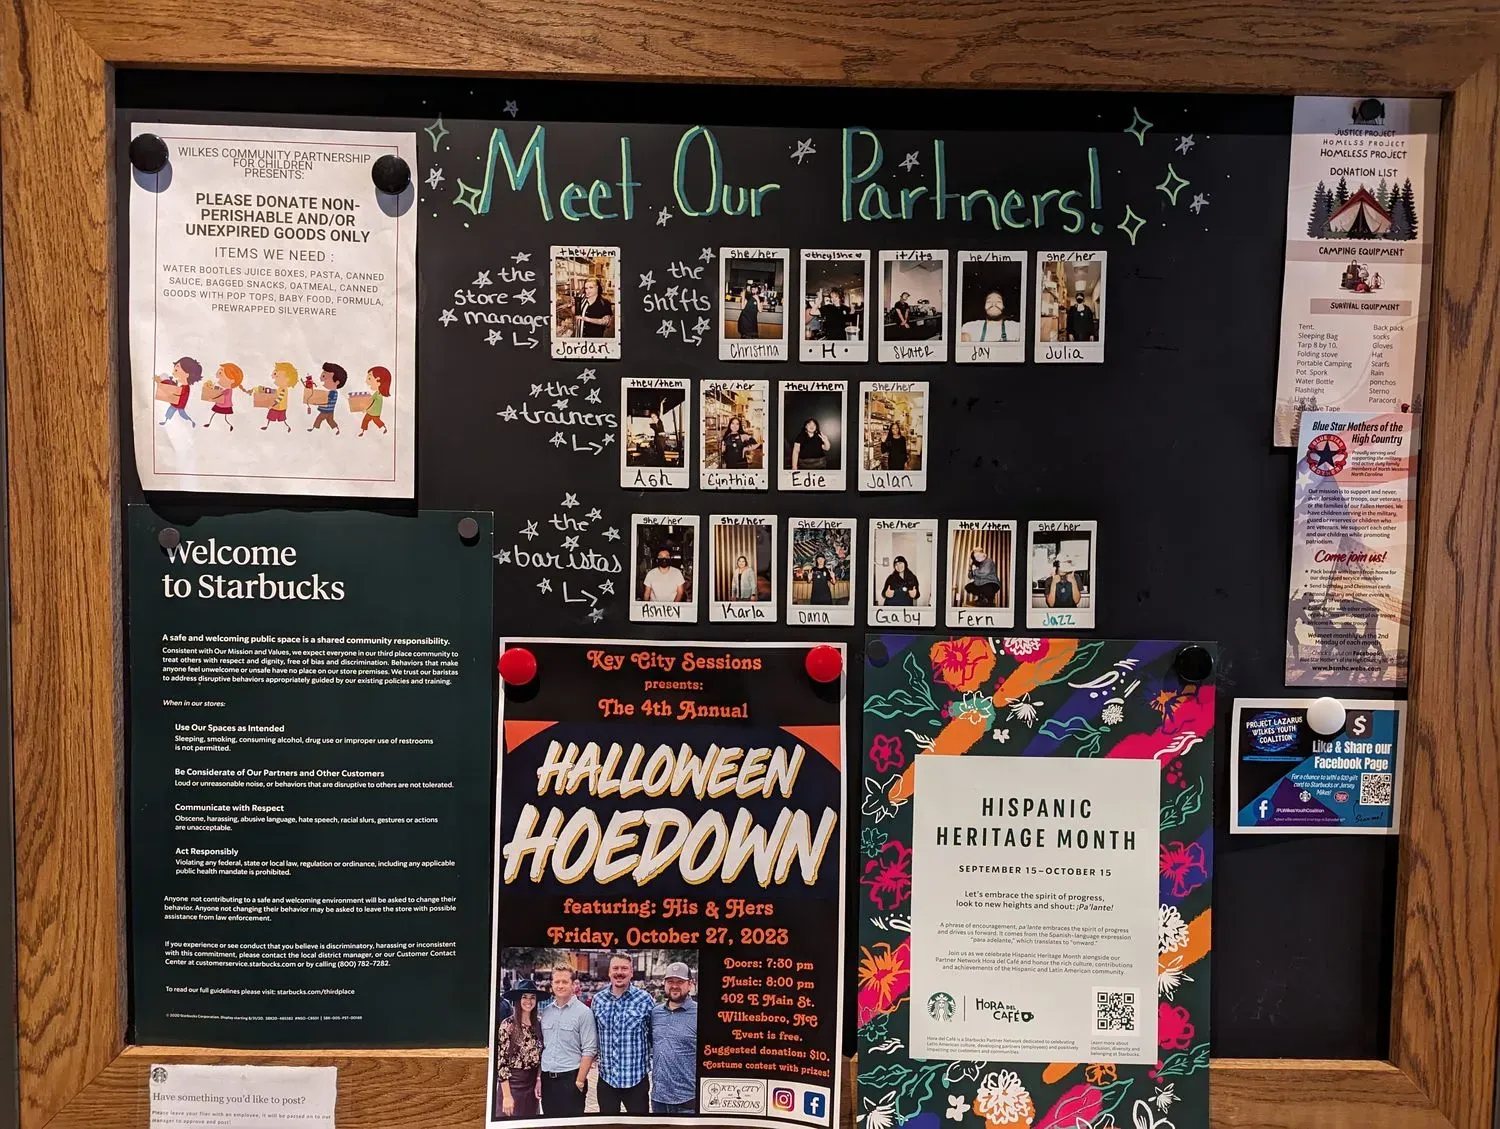 WILKES COMMUNITY PARTNERSHIP
FOR CHILDREN
PRESENTS:
PLEASE DONATE NON-
PERISHABLE AND/OR
UNEXPIRED GOODS ONLY
ITEMS WE NEED :
WATER BOOTLES JUICE BOXES, PASTA, CANNED
SAUCE, BAGGED SNACKS, OATMEAL, CANNED
GOODS WITH POP TOPS, BABY FOOD, FORMULA,
PREWRAPPED SILVERWARE
Meet Our Partners!
the
store
manager
they/them
Jordan
the
shifts
she/her
Christina
they/she
H
it/its
Skater
he/him
Jay
she/her
Julia
the
trainers
they/them
Ash
she/her
Cynthia
they/them
Edie
she/her
Jalan
the
baristas
she/her
Ashley
she/her
Karla
she/her
Dana
she/her
Gaby
they/them
Fern
she/her
Jazz
Welcome
to Starbucks
A safe and welcoming public space is a shared community responsibility.
Consistent with Our Mission and Values, we expect everyone in our third place community to
treat others with respect and dignity, free of bias and discrimination. Behaviors that make
anyone feel unwelcome or unsafe have no place on our store premises. We trust our baristas
to address disruptive behaviors appropriately guided by our existing policies and training.
When in our stores:
Use Our Spaces as Intended
Sleeping, smoking, consuming alcohol, drug use or improper use of restrooms
is not permitted.
Be Considerate of Our Partners and Other Customers
Loud or unreasonable noise, or behaviors that are disruptive to others are not tolerated.
Communicate with Respect
Obscene, harassing, abusive language, hate speech, racial slurs, gestures or actions
are unacceptable.
Act Responsibly
Violating any federal, state or local law, regulation or ordinance, including any applicable
public health mandate is prohibited.
Anyone not contributing to a safe and welcoming environment will be asked to change their
behavior. Anyone not changing their behavior may be asked to leave the store with possible
assistance from law enforcement.
If you experience or see conduct that you believe is discriminatory, harassing or inconsistent
with this commitment, please contact the local district manager, or our Customer Contact
Center at customerservice.starbucks.com or by calling (800) 782-7282.
To read our full guidelines please visit: starbucks.com/thirdplace
Have something you'd like to post?
Please leave your flier with an employee, it will be passed on to our
manager to approve and post!
Key City Sessions
presents:
The 4th Annual
HALLOWEEN
HOEDOWN
featuring: His & Hers
Friday, October 27, 2023
Doors: 7:30 pm
Music: 8:00 pm
402 E Main St.
Wilkesboro, NC
Event is free.
Suggested donation: $10.
Costume contest with prizes!
KEY CITY
SESSIONS
HISPANIC
HERITAGE MONTH
SEPTEMBER 15–OCTOBER 15
Let's embrace the spirit of progress,
look to new heights and shout: ¡Pa'lante!
A phrase of encouragement, pa'lante embraces the spirit of progress
and drives us forward. It comes from the Spanish-language expression
"para adelante," which translates to "onward."
Join us as we celebrate Hispanic Heritage Month alongside our
Partner Network Hora del Café and honor the rich culture, contributions
and achievements of the Hispanic and Latin American community.
HORA DEL
CAFÉ
Hora del Café is a Starbucks Partner Network dedicated to celebrating
Latin American culture, developing partners (employees) and positively
impacting our customers and communities.
Learn more about
inclusion, diversity and
belonging at Starbucks.
JUSTICE PROJECT
HOMELESS PROJECT
HOMELESS PROJECT
DONATION LIST
CAMPING EQUIPMENT
SURVIVAL EQUIPMENT
Tent.
Sleeping Bag
Tarp 8 by 10.
Folding stove
Portable Camping
Pot Spork
Water Bottle
Flashlight
Lighter
Reflective Tape
Back pack
socks
Gloves
Hat
Scarfs
Rain
ponchos
Sterno
Paracord
Blue Star Mothers of the
High Country
Proudly serving and
supporting the military
and active duty family
members of North Western
North Carolina
Our mission is to support and never,
ever, forsake our troops, our veterans
or the families of our Fallen Heroes. We
have children serving in the military,
guard or reserves or children who
are veterans. We support each other
and our children while promoting
patriotism.
Come join us!
Pack boxes with items from home for
our deployed service members
Send birthday and Christmas cards
We meet monthly on the 2nd
Monday of each month
www.bsmhc.webs.com
PROJECT LAZARUS
WILKES YOUTH
COALITION
$
Like & Share our
Facebook Page
For a chance to WIN a $20 gift
card to Starbucks or Jersey
Mikes!
/PLWilkesYouthCoalition
Scan me!